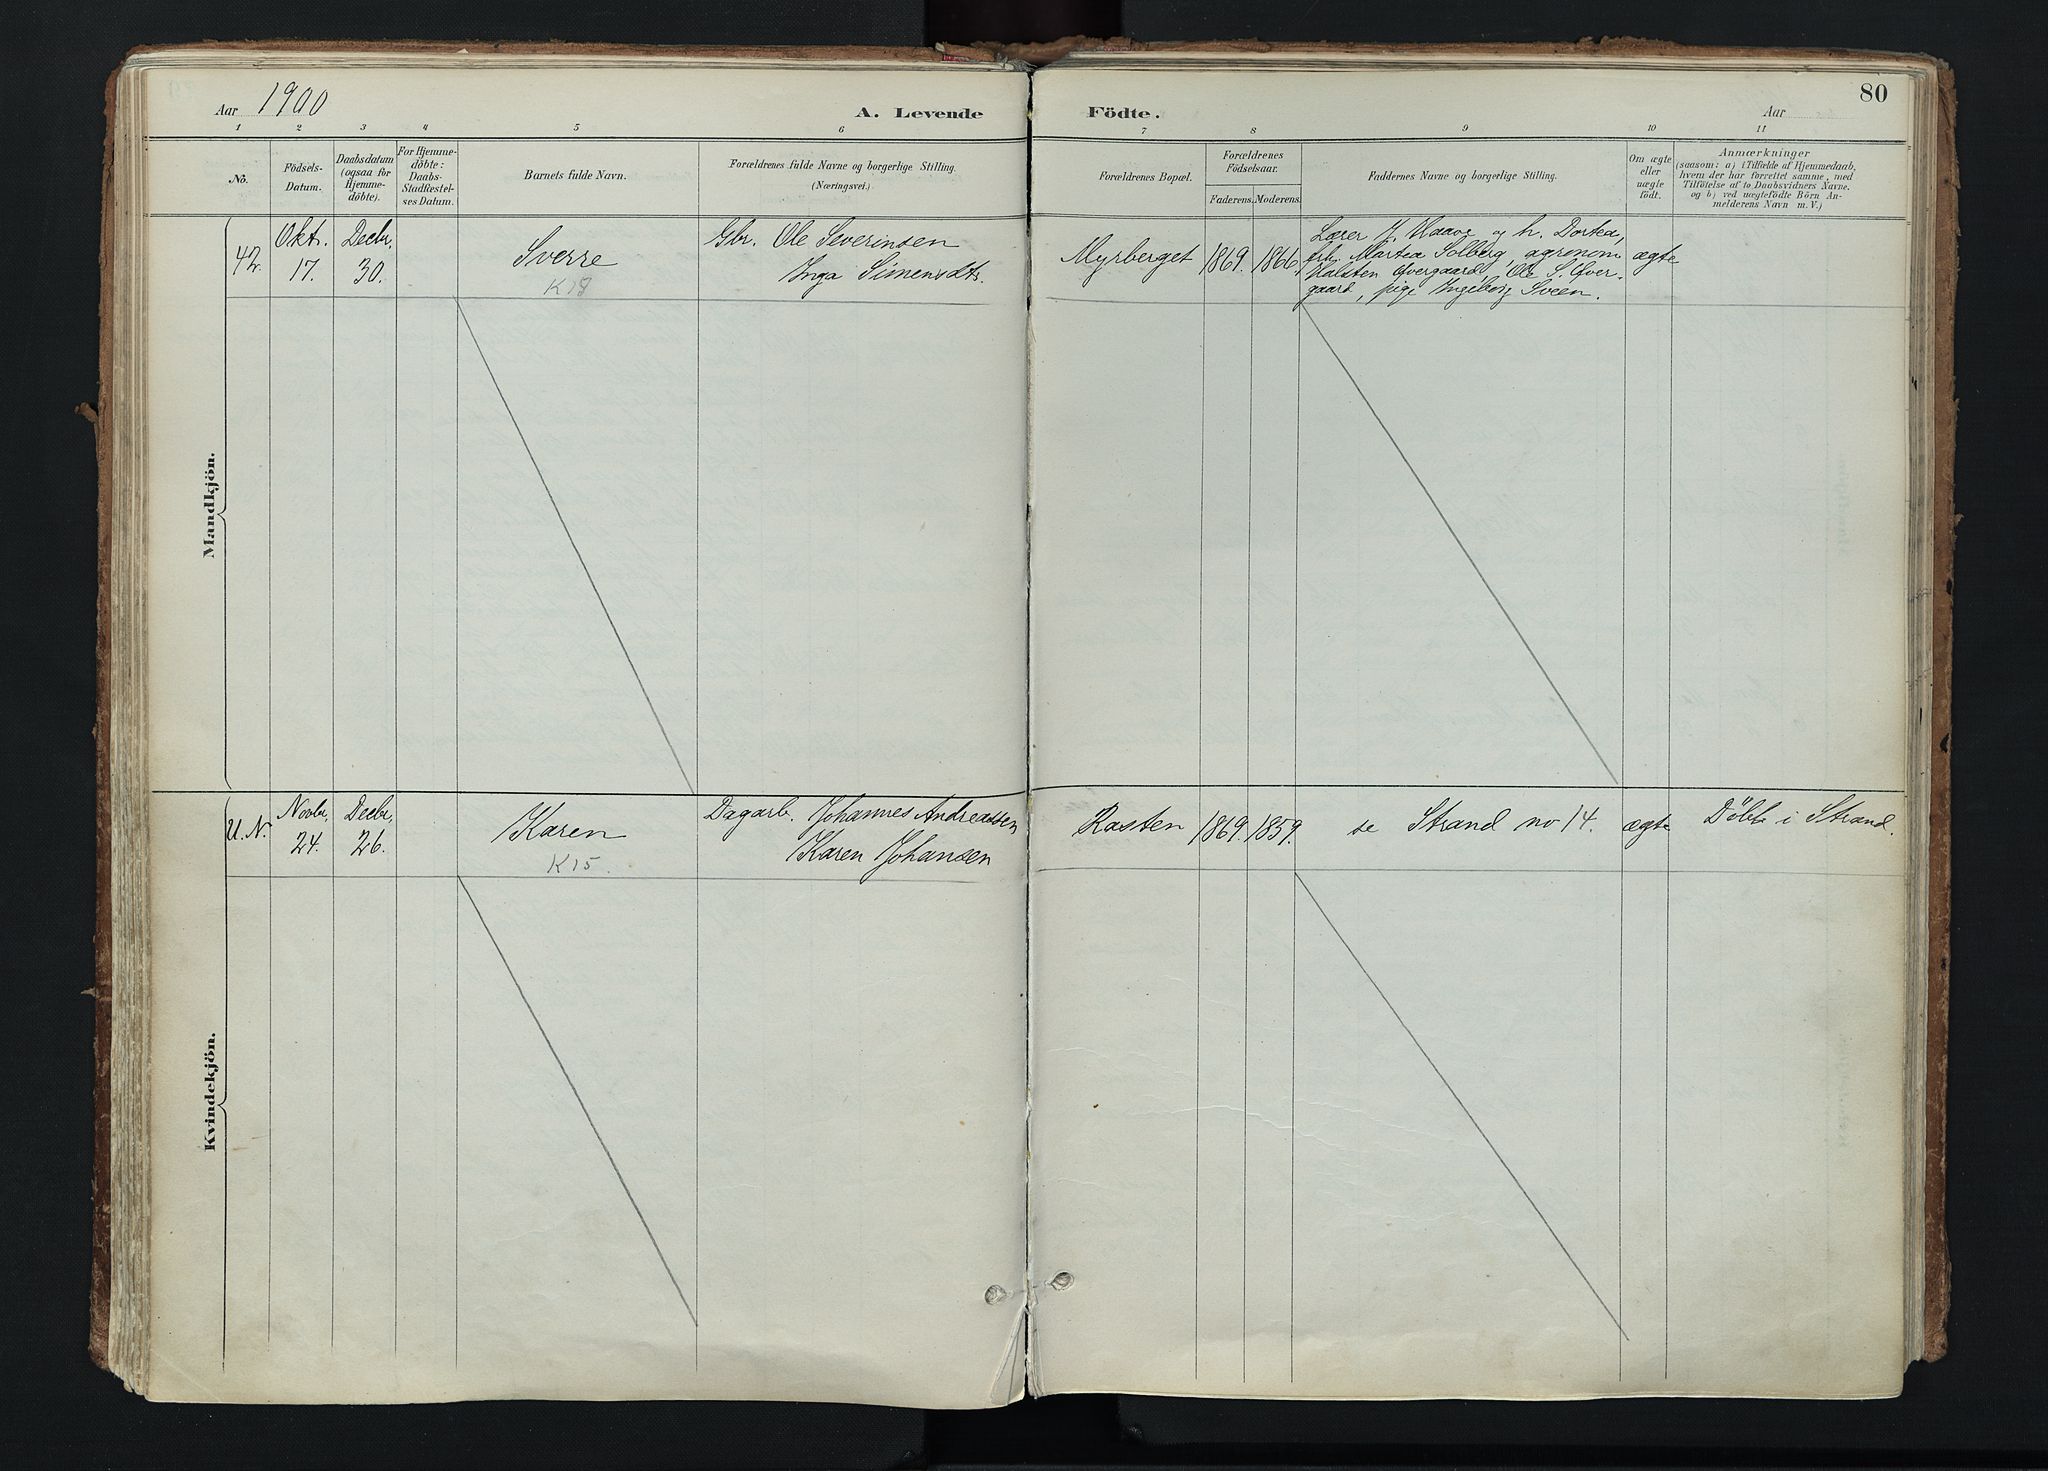 80
Aar 1900
A. Levende
Födte.
Aar
1 2 3 4 5 6 7 8 9 10 11
No.
Födsels-
Datum.
Daabsdatum
(ogsaa for
Hjemme-
döbte).
For Hjemme-
döbte:
Daabs-
Stadfæstel-
ses Datum.
Barnets fulde Navn.
Forældrenes fulde Navne og borgerlige Stilling.
(Næringsvei.)
Forældrenes Bopæl.
Forældrenes
Födselsaar.
Faderens. Moderens.
Faddernes Navne og borgerlige Stilling.
Om ægte
eller
uægte
födt.
Anmærkninger
(saasom: a) i Tilfælde af Hjemmedaab,
hvem der har forrettet samme, med
Tilföielse af to Daabsvidners Navne.
og b) ved uægtefödte Börn An-
melderens Navn m. V.)
Mandkjön.
42.
Okt.
17.
Decbr.
30.
Sverre
K 18
Gbr. Ole Severinsen
Inga Simensdts.
Myrberget
1869.
1866
Lærer J. Haave og h. Dortea,
frk. Martea Solberg, agronom
Halsten Øvergaard, Ole S. Øver-
gaard, pige Ingeborg Sveen.
ægte
Kvindekjön.
U. N.
Novbr.
24.
Decbr.
26.
Karen
K 15.
Dagarb. Johannes Andreassen
Karen Johansen
Rasten
1869.
1859.
se Strand no 14.
ægte
Döbt i Strand.